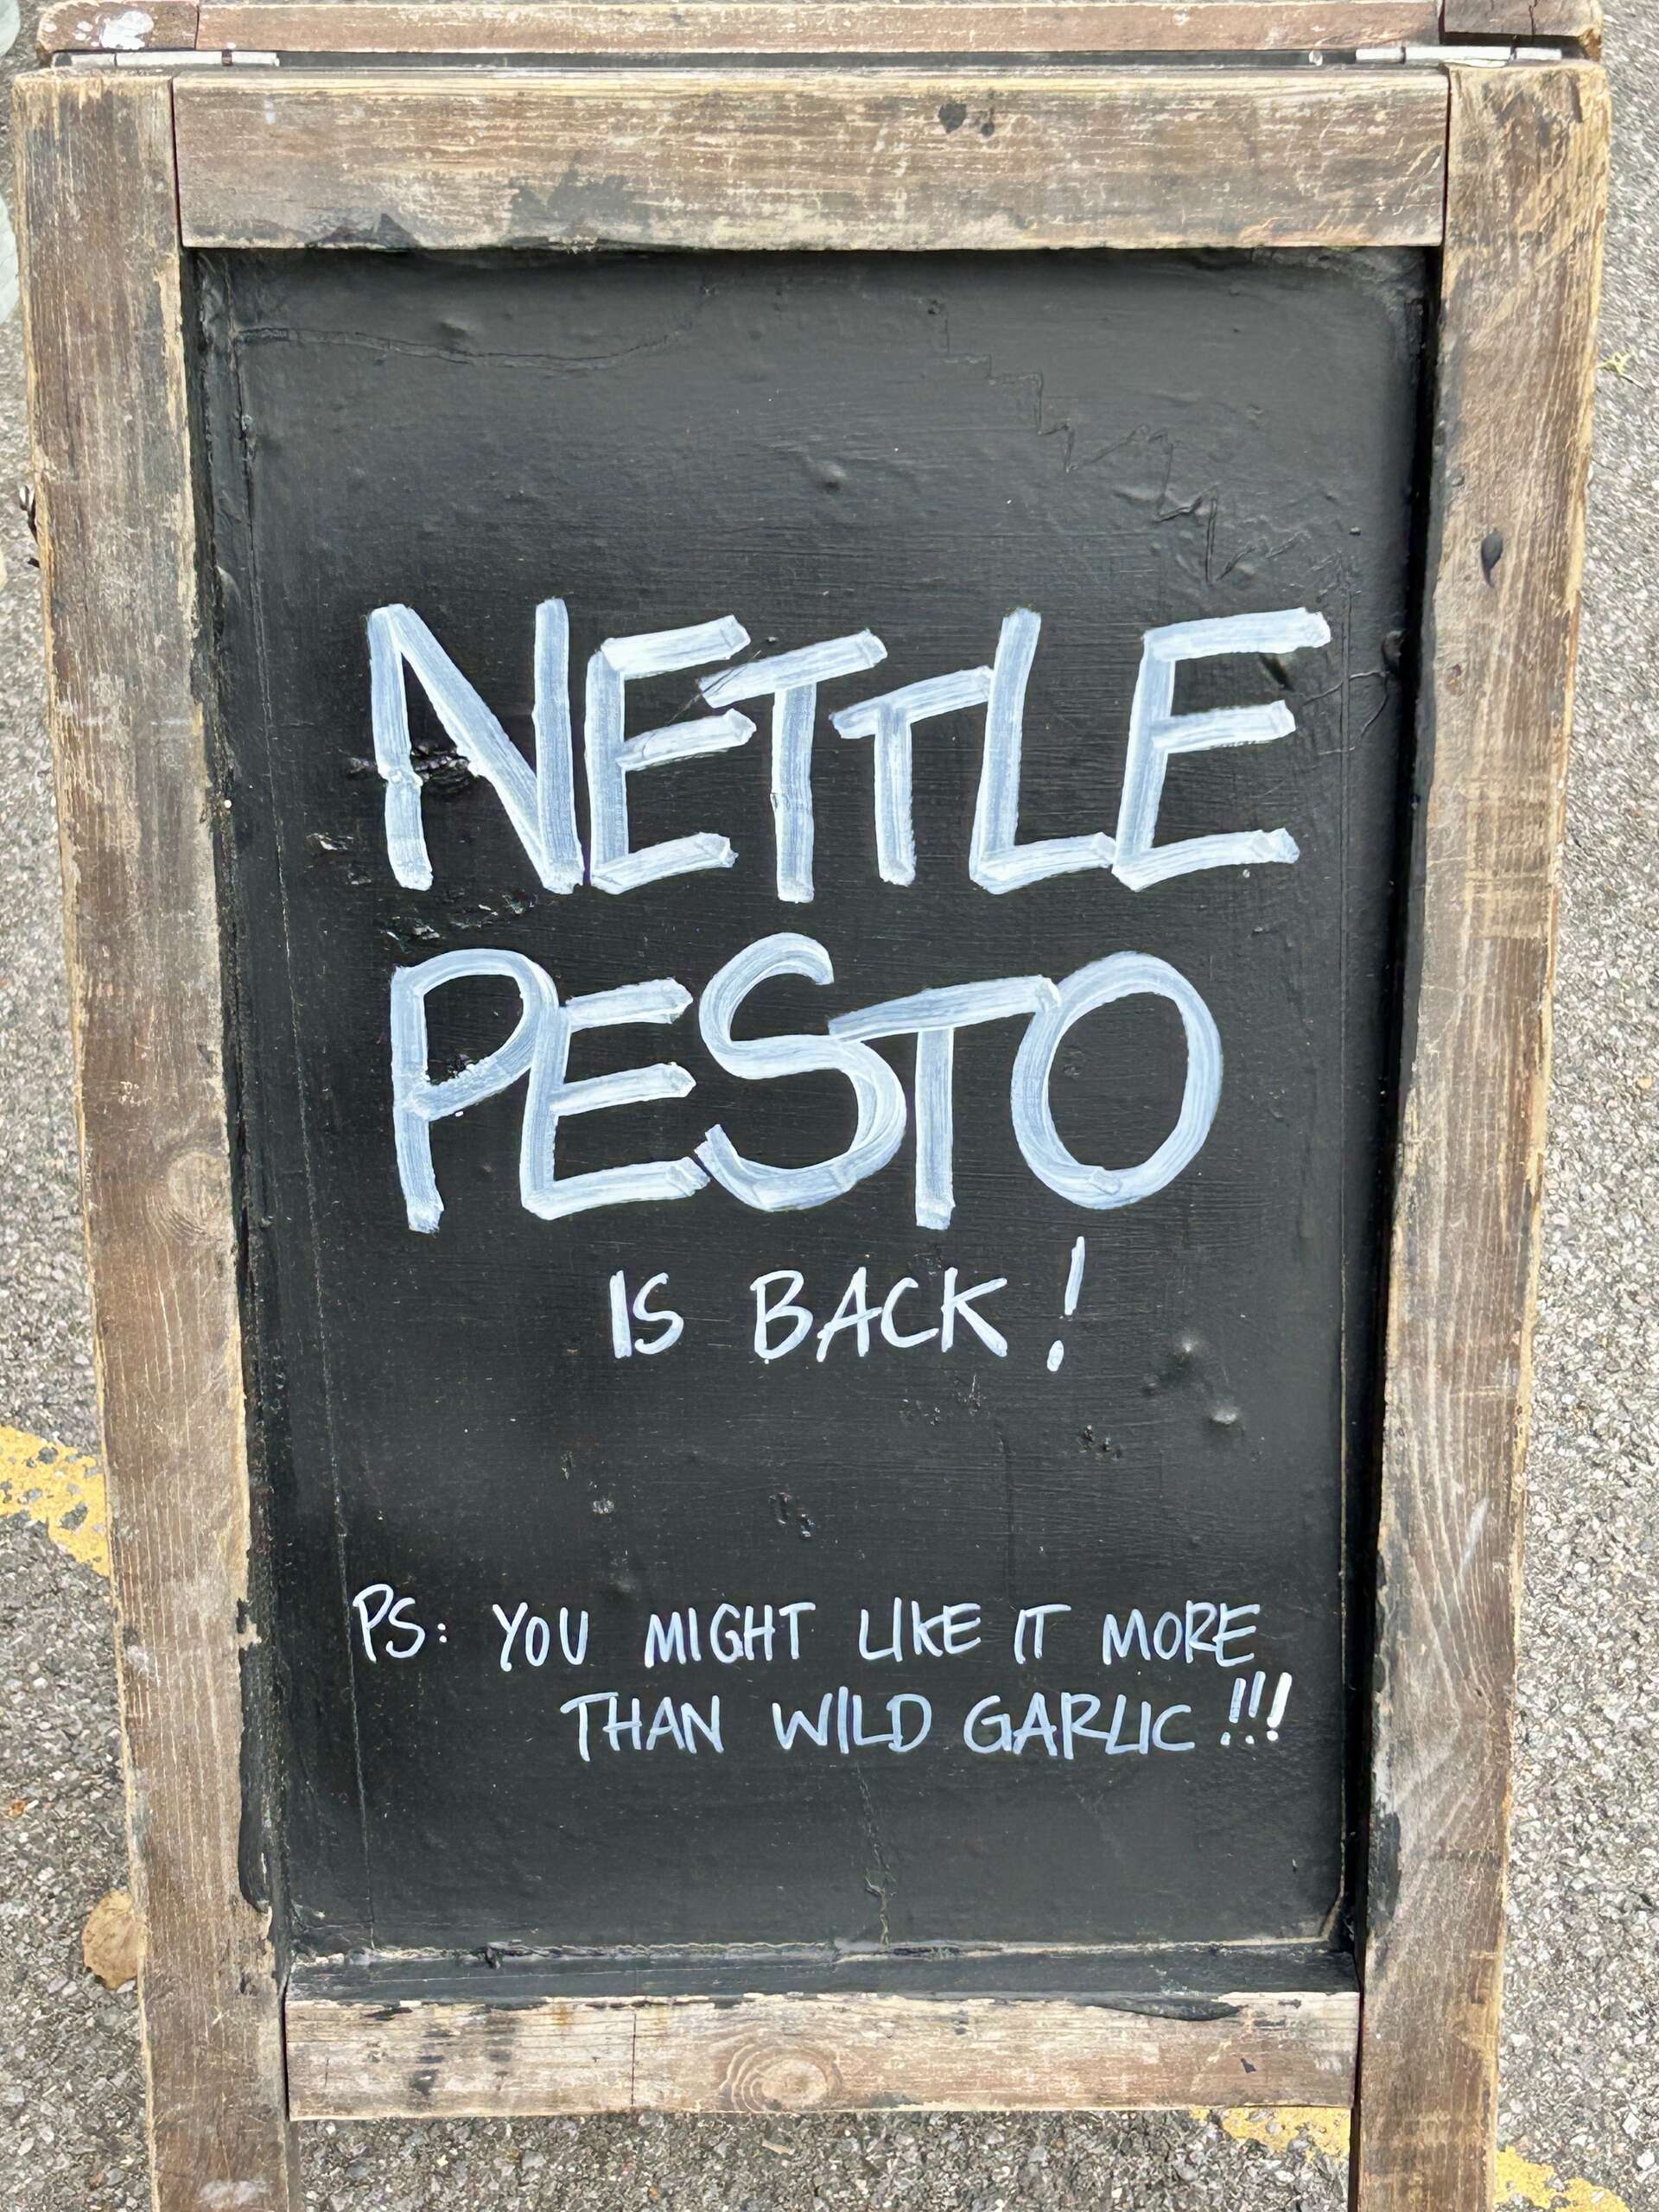 NETTLE
PESTO
IS BACK!
PS: YOU MIGHT LIKE IT MORE
THAN WILD GARLIC!!!